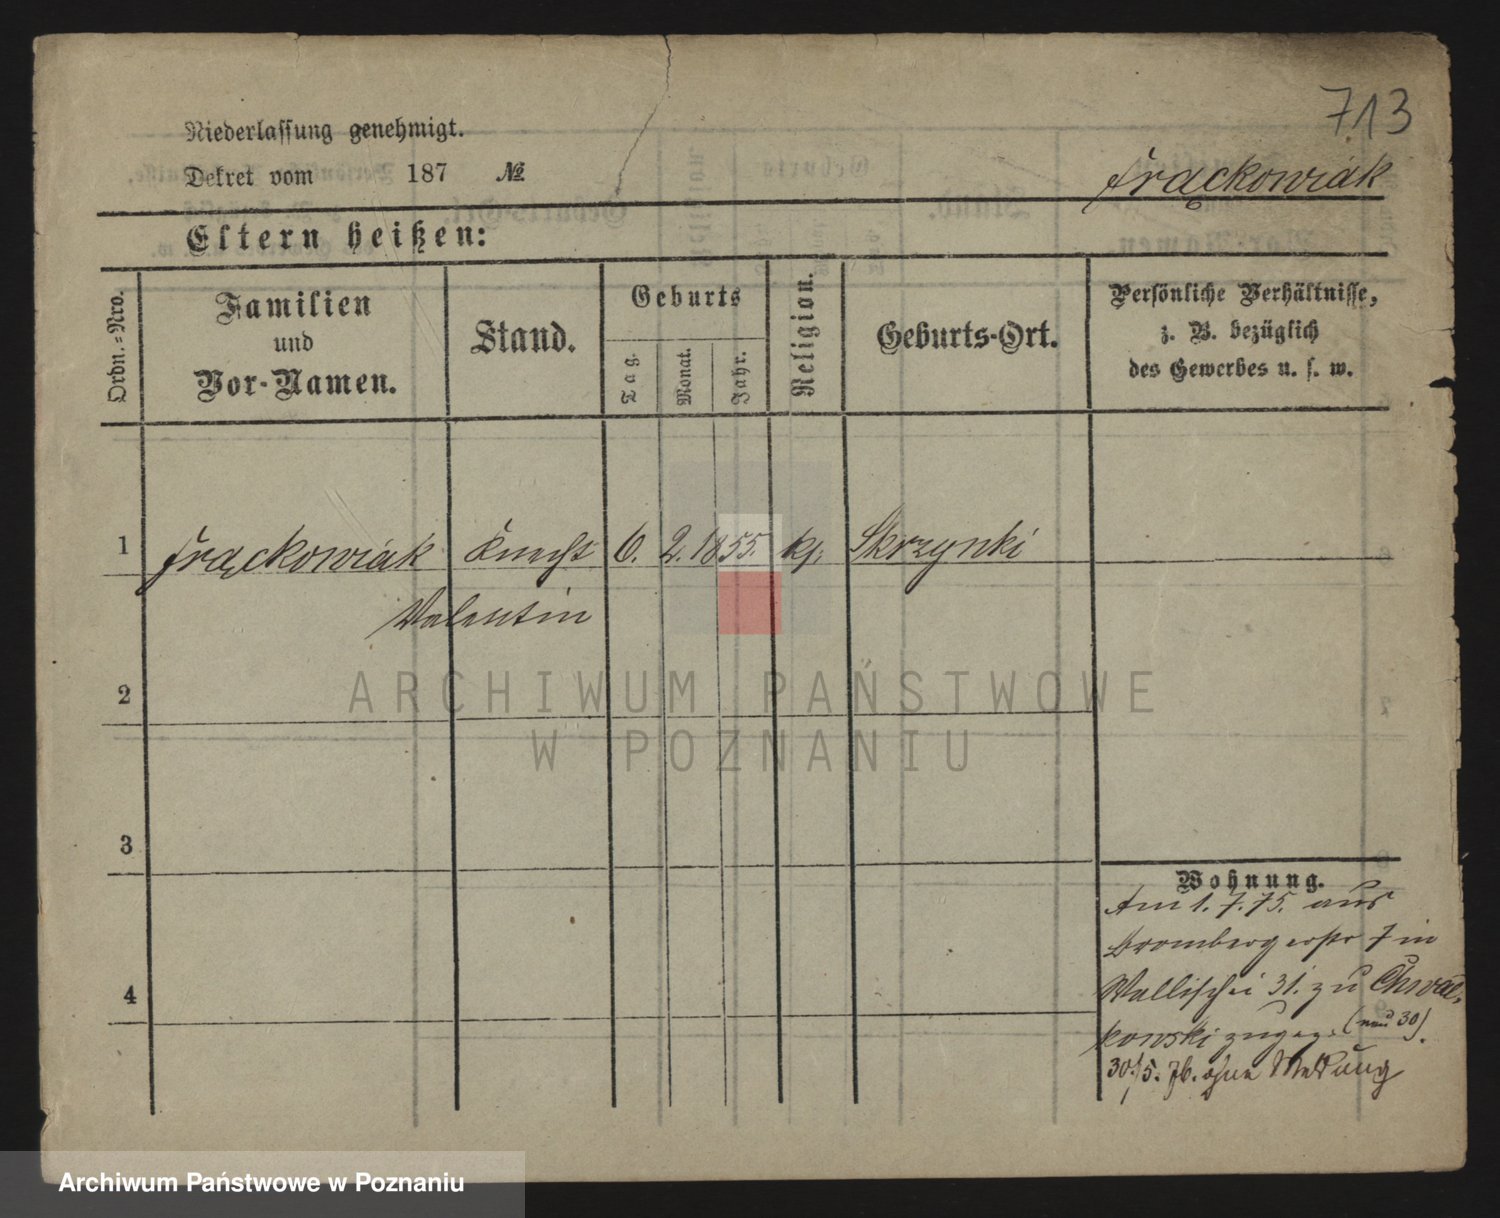 713
Niederlassung genehmigt.
Dekret vom 187 №
Frąckowiak
Eltern heißen:
Ordn.=Nro.
Familien
und
Vor-Namen.
Stand.
Geburts
Tag.
Monat.
Jahr.
Religion.
Geburts-Ort.
Persönliche Verhältnisse,
z. B. bezüglich
des Gewerbes u. s. w.
1 Frąckowiak Knecht 6. 2. 1855. kj. Skrzynki
Valentin
2
3
4
Wohnung.
Am 1. 7. 75. aus
Brombergerstr 7 in
Wallischei 31. zu Chwał-
kowski zugez. (neu 30).
30./5. 76. ohne Meldung
ARCHIWUM PAŃSTWOWE
W POZNANIU
Archiwum Państwowe w Poznaniu